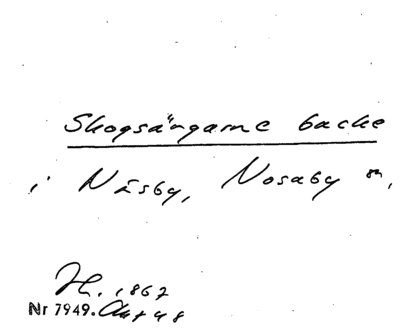 Skogsängarne backe
i Näsby, Nosaby sn,
H. 1867
Nr 7949.